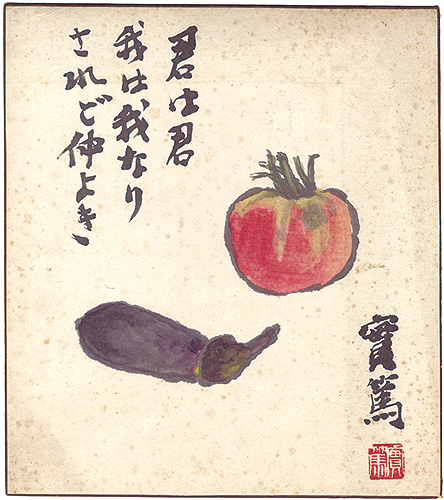 君は君
我は我なり
されど仲よき
實篤
實篤